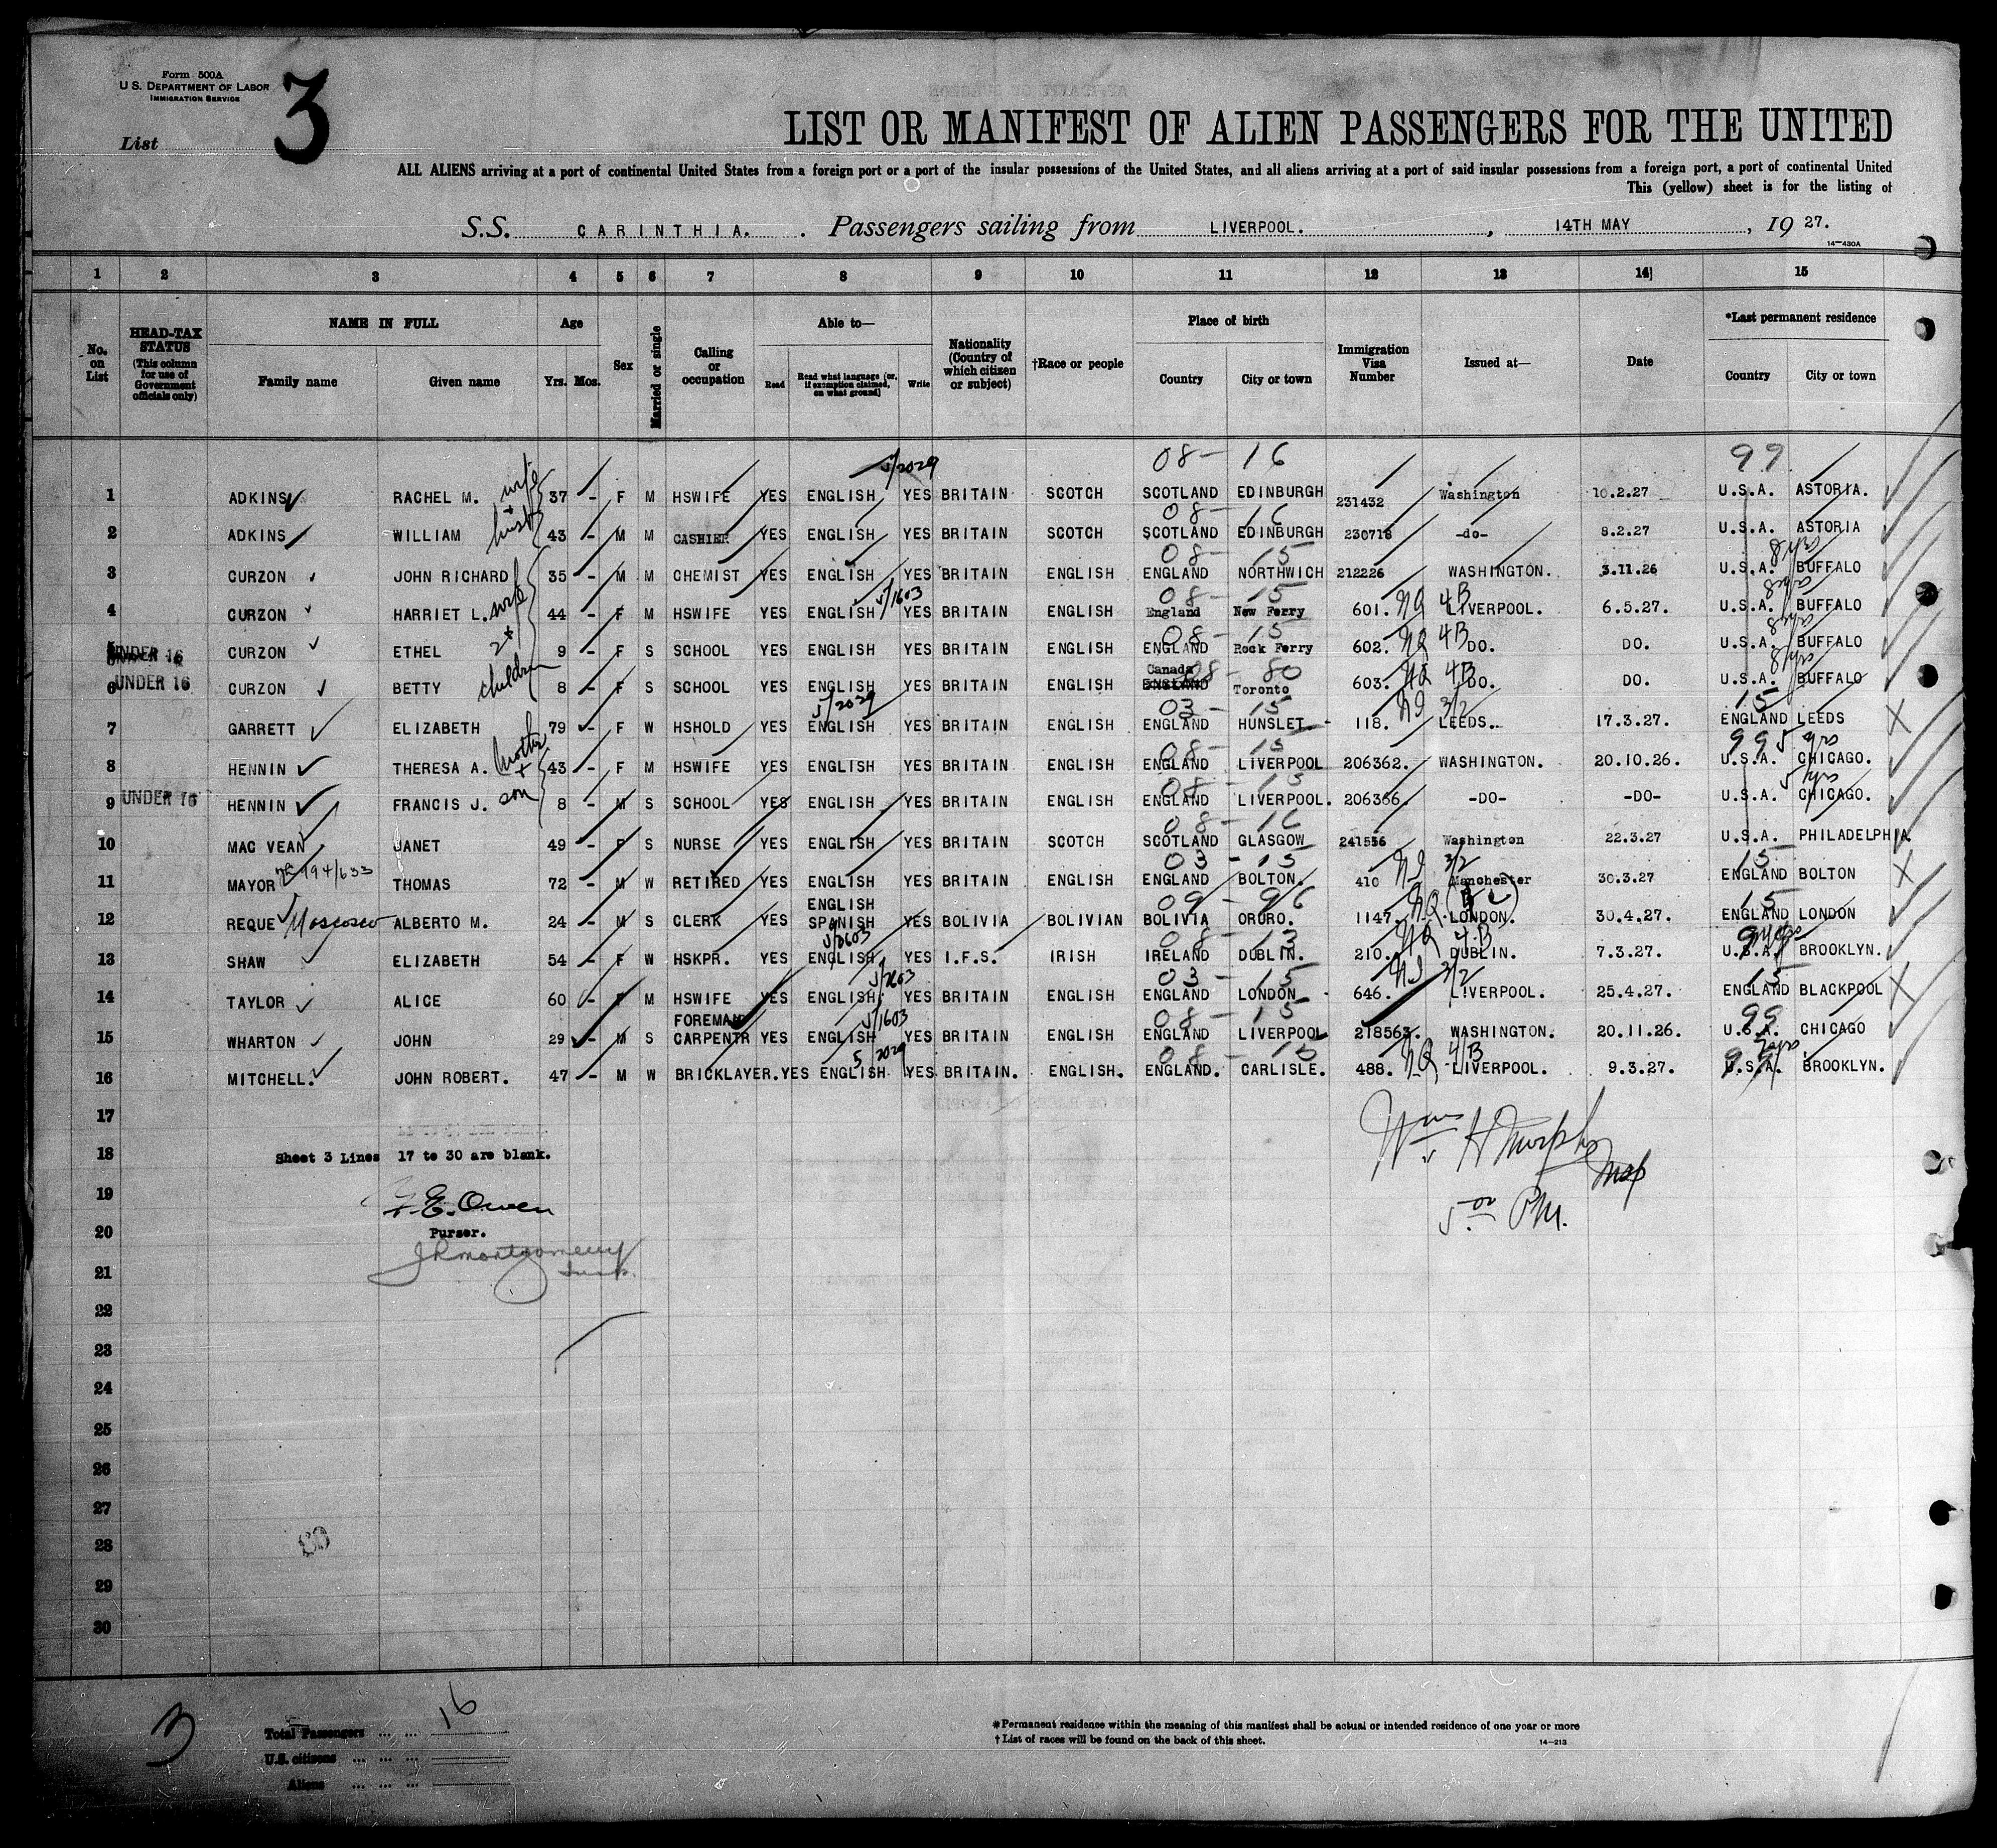 Form 500A
U.S. DEPARTMENT OF LABOR
IMMIGRATION SERVICE
List 3
LIST OR MANIFEST OF ALIEN PASSENGERS FOR THE UNITED
ALL ALIENS arriving at a port of continental United States from a foreign port or a port of the insular possessions of the United States, and all aliens arriving at a port of said insular possessions from a foreign port, a port of continental United
This (yellow) sheet is for the listing of
S.S. CARINTHIA. Passengers sailing from LIVERPOOL. , 14TH MAY , 19 27.
14-430A
1 2 3 4 5 6 7 8 9 10 11 12 13 14 15
No. on List
HEAD-TAX STATUS (This column for use of Government officials only)
NAME IN FULL
Family name Given name
Age
Yrs. Mos.
Sex
Married or single
Calling or occupation
Able to—
Read
Read what language (or, if exemption claimed, on what ground)
Write
Nationality (Country of which citizen or subject)
†Race or people
Place of birth
Country City or town
Immigration Visa Number
Issued at—
Date
*Last permanent residence
Country City or town
5/2029 08- 16 99
1 ADKINS RACHEL M. wife + 37 - F M HSWIFE YES ENGLISH YES BRITAIN SCOTCH SCOTLAND EDINBURGH 231432 Washington 10.2.27 U.S.A. ASTORIA.
08- 16
2 ADKINS WILLIAM husb 43 - M M CASHIER YES ENGLISH YES BRITAIN SCOTCH SCOTLAND EDINBURGH 230718 -do- 8.2.27 U.S.A. ASTORIA
08- 15
3 CURZON JOHN RICHARD 35 - M M CHEMIST YES ENGLISH YES BRITAIN ENGLISH ENGLAND NORTHWICH 212226 WASHINGTON. 3.11.26 U.S.A. BUFFALO
5/1603 08- 15
4 CURZON HARRIET L. wife 44 - F M HSWIFE YES ENGLISH YES BRITAIN ENGLISH England New Ferry 601. NQ 4B LIVERPOOL. 6.5.27. U.S.A. BUFFALO
08- 15
5 UNDER 16 CURZON ETHEL 2 9 - F S SCHOOL YES ENGLISH YES BRITAIN ENGLISH ENGLAND Rock Ferry 602. NQ 4B DO. DO. U.S.A. BUFFALO
Canada 08- 80
6 UNDER 16 CURZON BETTY children 8 - F S SCHOOL YES ENGLISH YES BRITAIN ENGLISH ENGLAND Toronto 603. NQ 4B DO. DO. U.S.A. BUFFALO
5/2029 03- 15 15
7 GARRETT ELIZABETH 79 - F W HSHOLD YES ENGLISH YES BRITAIN ENGLISH ENGLAND HUNSLET 118. NI 3/2 LEEDS. 17.3.27. ENGLAND LEEDS
08- 15 99 5 yrs
8 HENNIN THERESA A. mother + 43 - F M HSWIFE YES ENGLISH YES BRITAIN ENGLISH ENGLAND LIVERPOOL 206362. WASHINGTON. 20.10.26. U.S.A. CHICAGO.
08- 15 5 yrs
9 UNDER 16 HENNIN FRANCIS J. son 8 - M S SCHOOL YES ENGLISH YES BRITAIN ENGLISH ENGLAND LIVERPOOL. 206366. -DO- -DO- U.S.A. CHICAGO.
08- 16
10 MAC VEAN JANET 49 - F S NURSE YES ENGLISH YES BRITAIN SCOTCH SCOTLAND GLASGOW 241556 Washington 22.3.27 U.S.A. PHILADELPHIA
03- 15 15
11 MAYOR 994/633 THOMAS 72 - M W RETIRED YES ENGLISH YES BRITAIN ENGLISH ENGLAND BOLTON. 410 NI 3/2 Manchester 30.3.27 ENGLAND BOLTON
ENGLISH 09- 96 15
12 REQUE Moscoso ALBERTO M. 24 - M S CLERK YES SPANISH YES BOLIVIA BOLIVIAN BOLIVIA ORURO. 1147. NQ LONDON. 30.4.27. ENGLAND LONDON
5/1603 08- 13
13 SHAW ELIZABETH 54 - F W HSKPR. YES ENGLISH YES I.F.S. IRISH IRELAND DUBLIN. 210. NQ 4B DUBLIN. 7.3.27. U.S.A. BROOKLYN.
5/1603 03- 15 15
14 TAYLOR ALICE 60 - F M HSWIFE YES ENGLISH YES BRITAIN ENGLISH ENGLAND LONDON 646. NI 3/2 LIVERPOOL. 25.4.27. ENGLAND BLACKPOOL
FOREMAN 5/1603 08- 15 99
15 WHARTON JOHN 29 - M S CARPENTR YES ENGLISH YES BRITAIN ENGLISH ENGLAND LIVERPOOL 218563. WASHINGTON. 20.11.26. U.S.A. CHICAGO
5/2029 08- 15 99
16 MITCHELL. JOHN ROBERT. 47 - M W BRICKLAYER. YES ENGLISH YES BRITAIN. ENGLISH. ENGLAND. CARLISLE. 488. NQ 4/B LIVERPOOL. 9.3.27. U.S.A. BROOKLYN.
17
Wm H Murphy
18 Sheet 3 Lines 17 to 30 are blank.
19 F.E. Owen
5.00 PM.
20 Purser.
JR Montgomery
21 Insp.
22
23
24
25
26
27
28
29
30
3
Total Passengers ... ... 16
U.S. citizens ... ... ...
Aliens ... ... ...
*Permanent residence within the meaning of this manifest shall be actual or intended residence of one year or more
†List of races will be found on the back of this sheet.
14-213